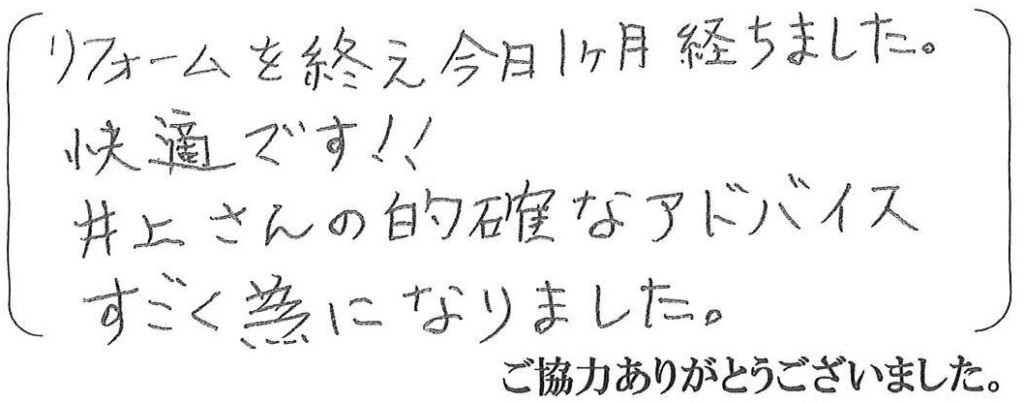 リフォームを終え今日1ヶ月経ちました。
快適です!!
井上さんの的確なアドバイス
すごく為になりました。
ご協力ありがとうございました。